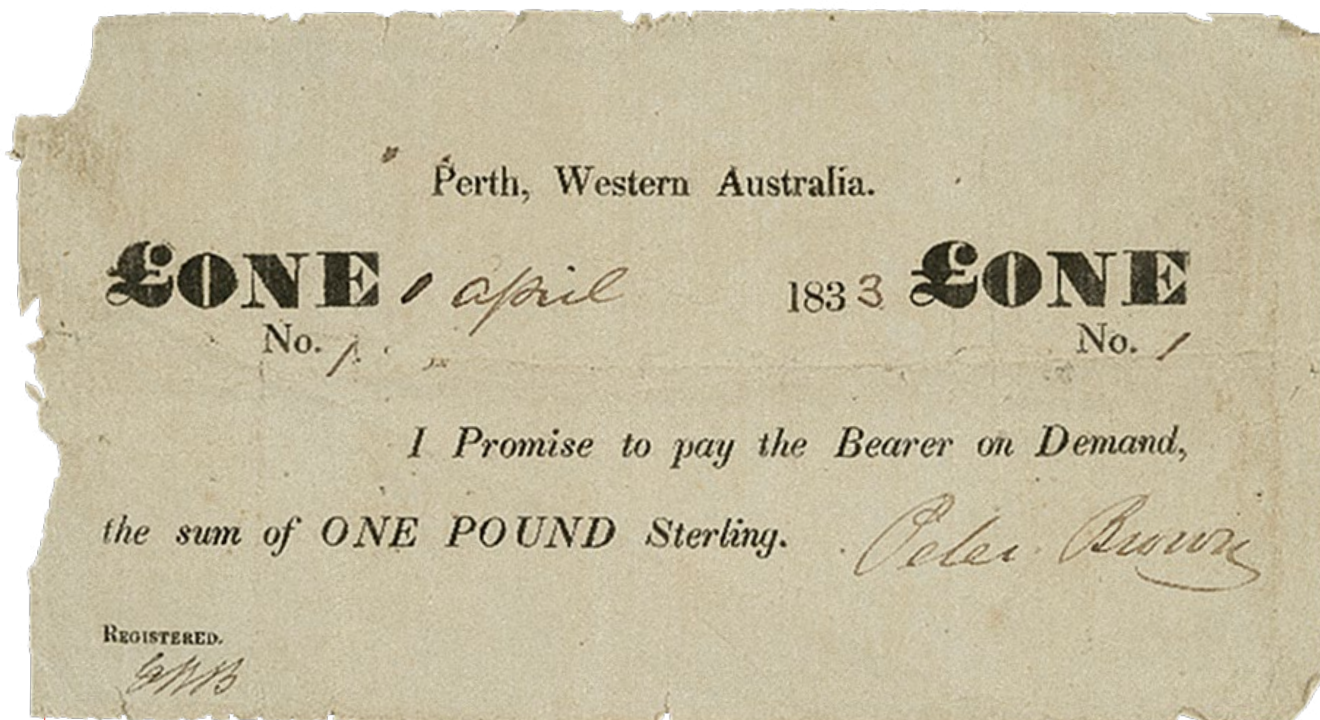 Perth, Western Australia.
£ONE 1 april 1833 £ONE
No. 1. No. 1
I Promise to pay the Bearer on Demand,
the sum of ONE POUND Sterling. Peter Brown
REGISTERED.